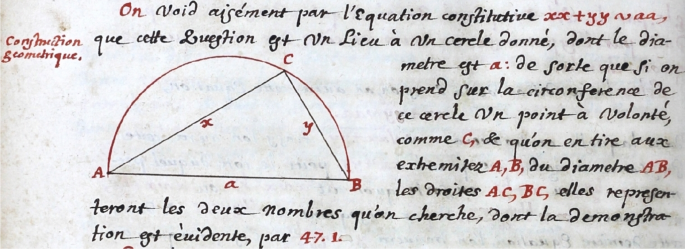 On void aisément par l'Equation constitutive xx+yy ∾ aa,
Construction
Geometrique.
que cette Question est Un Lieu à Un cercle donné, dont le dia-
metre est a: de sorte que si on
prend sur la circonference de
ce cercle Un point a volonté,
comme C, & qu'on en tire aux
extremitez A, B, du diametre AB,
les droites AC, BC, elles represen-
teront les deux nombres qu'on cherche, dont la demonstra-
tion est èvidente, par 47. 1.
C
x
y
A
a
B